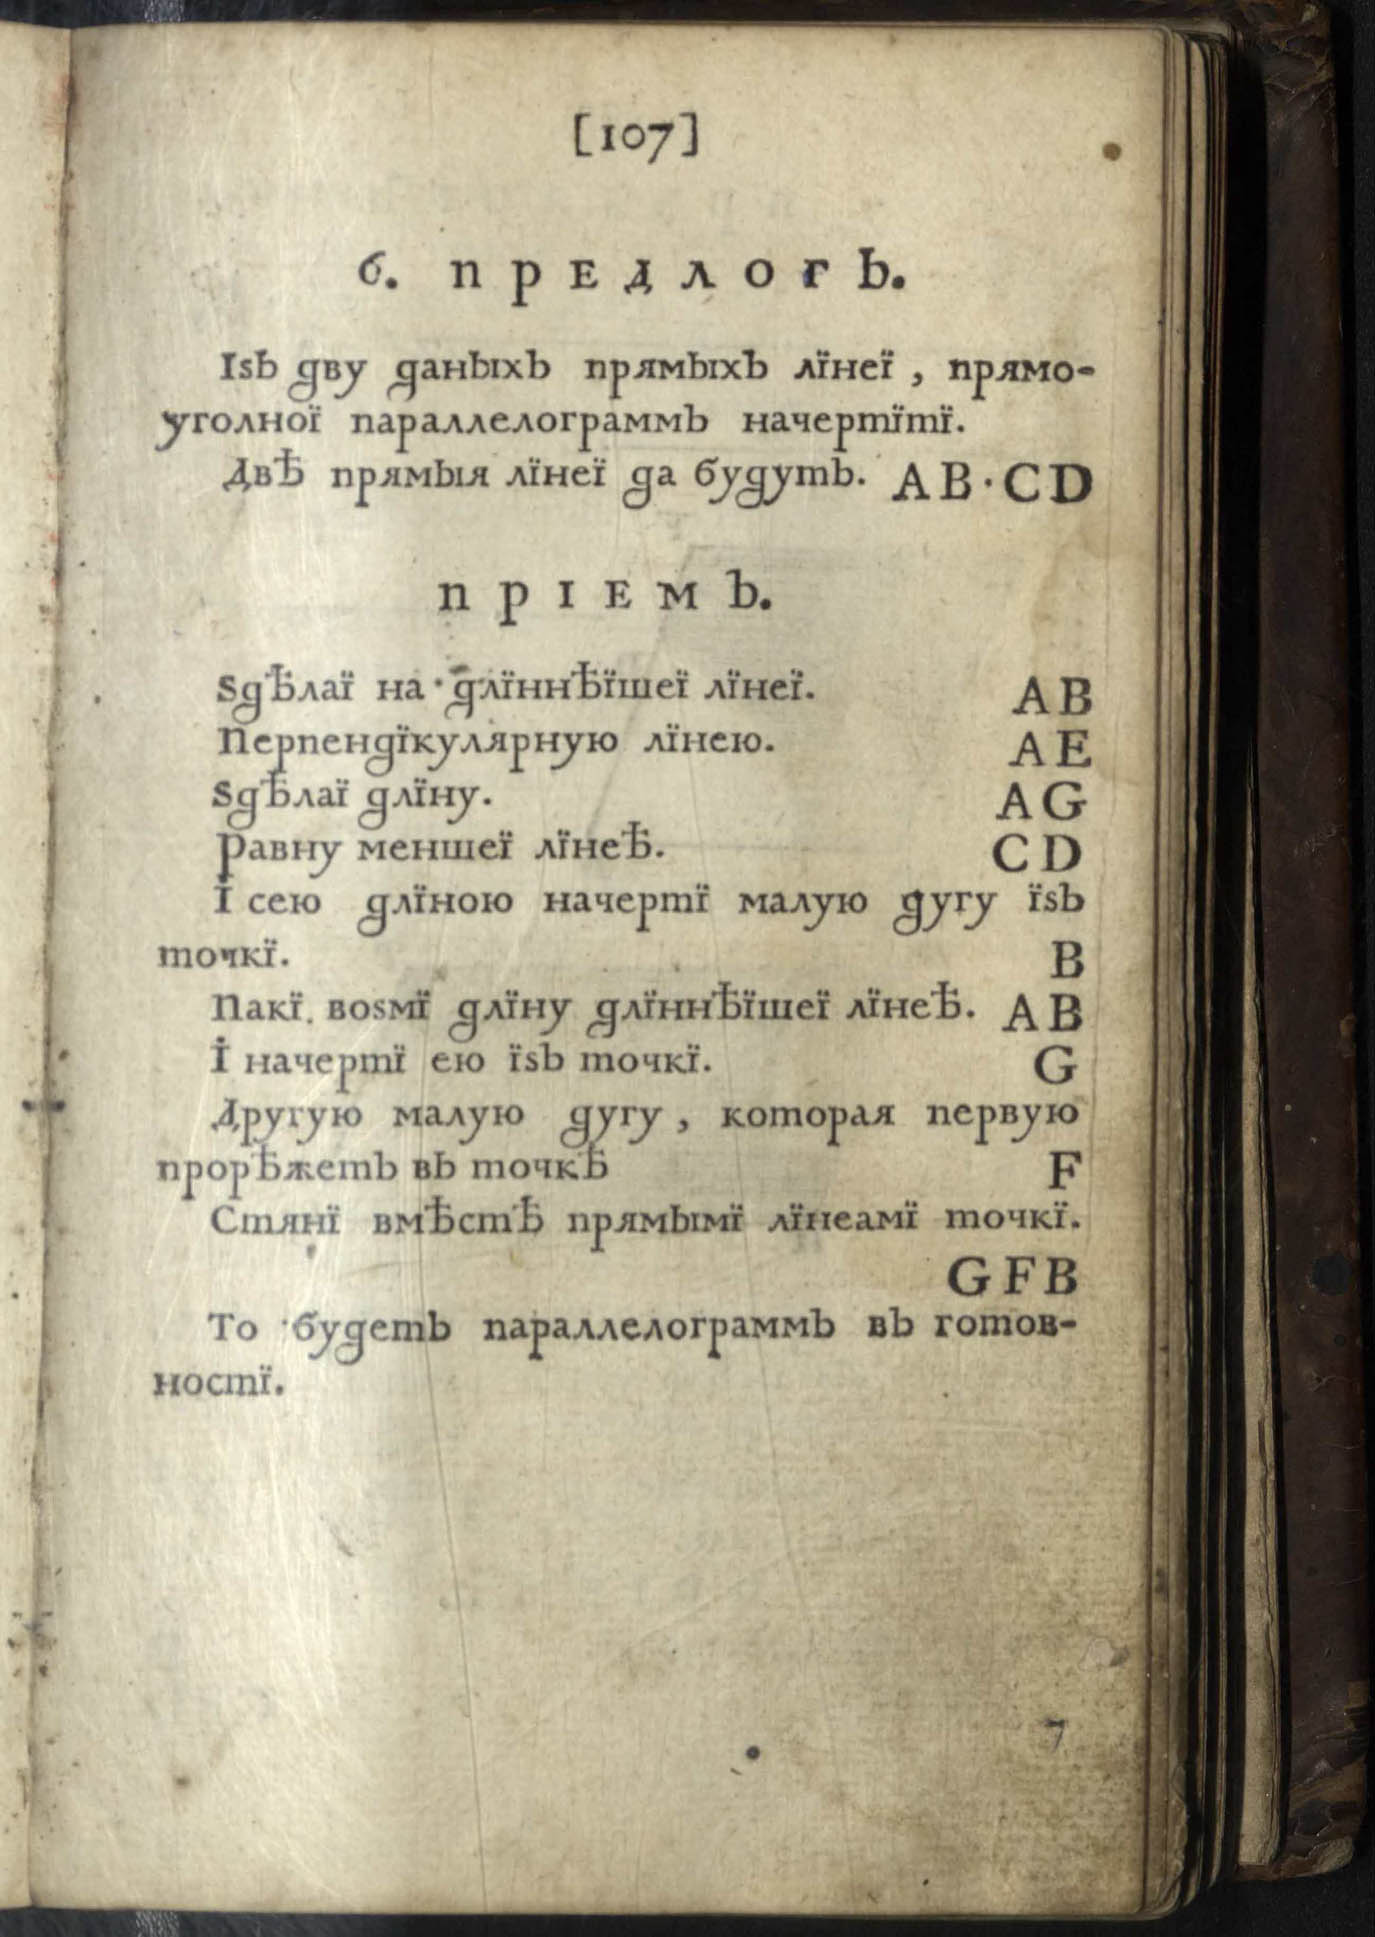 [107]
6. ПРЕДЛОГЬ.
Іѕь дву даныхь прямыхь лїнеї , прямо-
уголної параллелограммь начертїтї.
Двѣ прямыя лїнеї да будуть. AB·CD
ПРІЕМЬ.
Ѕдѣлаї на длїннѣїшеї лїнеї. AB
Перпендїкулярную лїнею. AE
Ѕдѣлаї длїну. AG
Равну меншеї лїнеѣ. CD
І сею длїною начертї малую дугу їѕь
точкї. B
Пакї. воѕмї длїну длїннѣїшеї лїнеѣ. AB
І начертї ею їѕь точкї. G
Другую малую дугу , которая первую
прорѣжеть вь точкѣ F
Стянї вмѣстѣ прямымї лїнеамї точкї.
GFB
То будеть параллелограммь вь готов-
ностї.
7